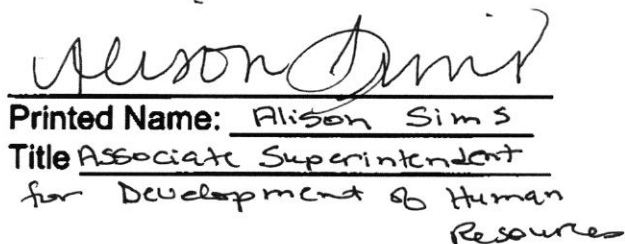 Alison Sims
Printed Name: Alison Sims
Title Associate Superintendent
for Development of Human
Resources